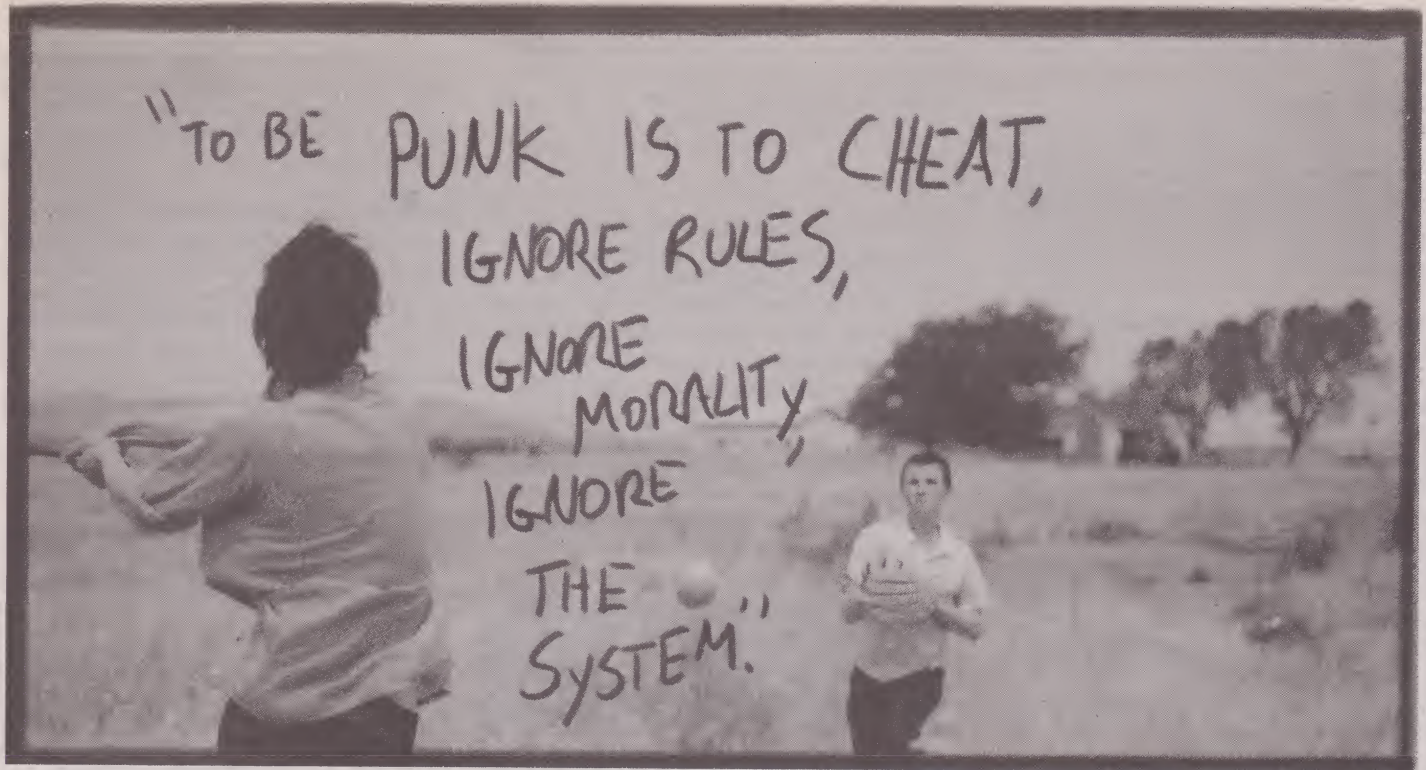 "TO BE PUNK IS TO CHEAT,
IGNORE RULES,
IGNORE
MORALITY,
IGNORE
THE
SYSTEM."